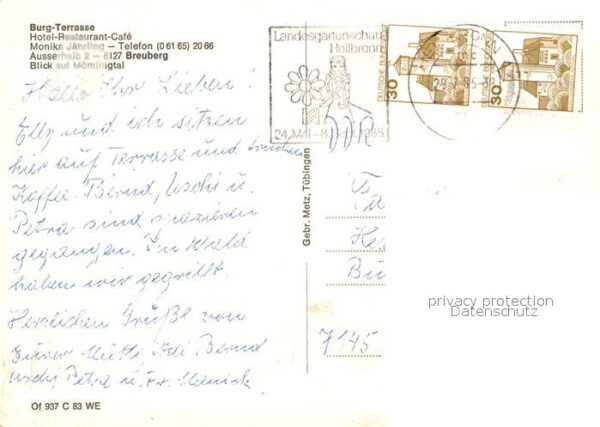 Burg-Terrasse
Hotel-Restaurant-Café
Monika Jährling — Telefon (0 61 65) 20 66
Ausserhalb 2 — 6127 Breuberg
Blick auf Mömlingtal
Hallo Ihr Lieben.
Elly und ich sitzen
hier auf Terrasse und trinken
Kaffee. Bernd, Uschi u.
Petra sind spazieren
gegangen. Im Wald
haben wir gegrillt.
Herzlichen Grüße von
Eurer Mutti Adi Bernd
Uschi Petra u. Fr.
Of 937 C 83 WE
Gebr. Metz, Tübingen
Landesgartenschau
Heilbronn
24. Mai - 8. 1985
DDR
30
30
Fa
He
Bü
7145
privacy protection
Datenschutz